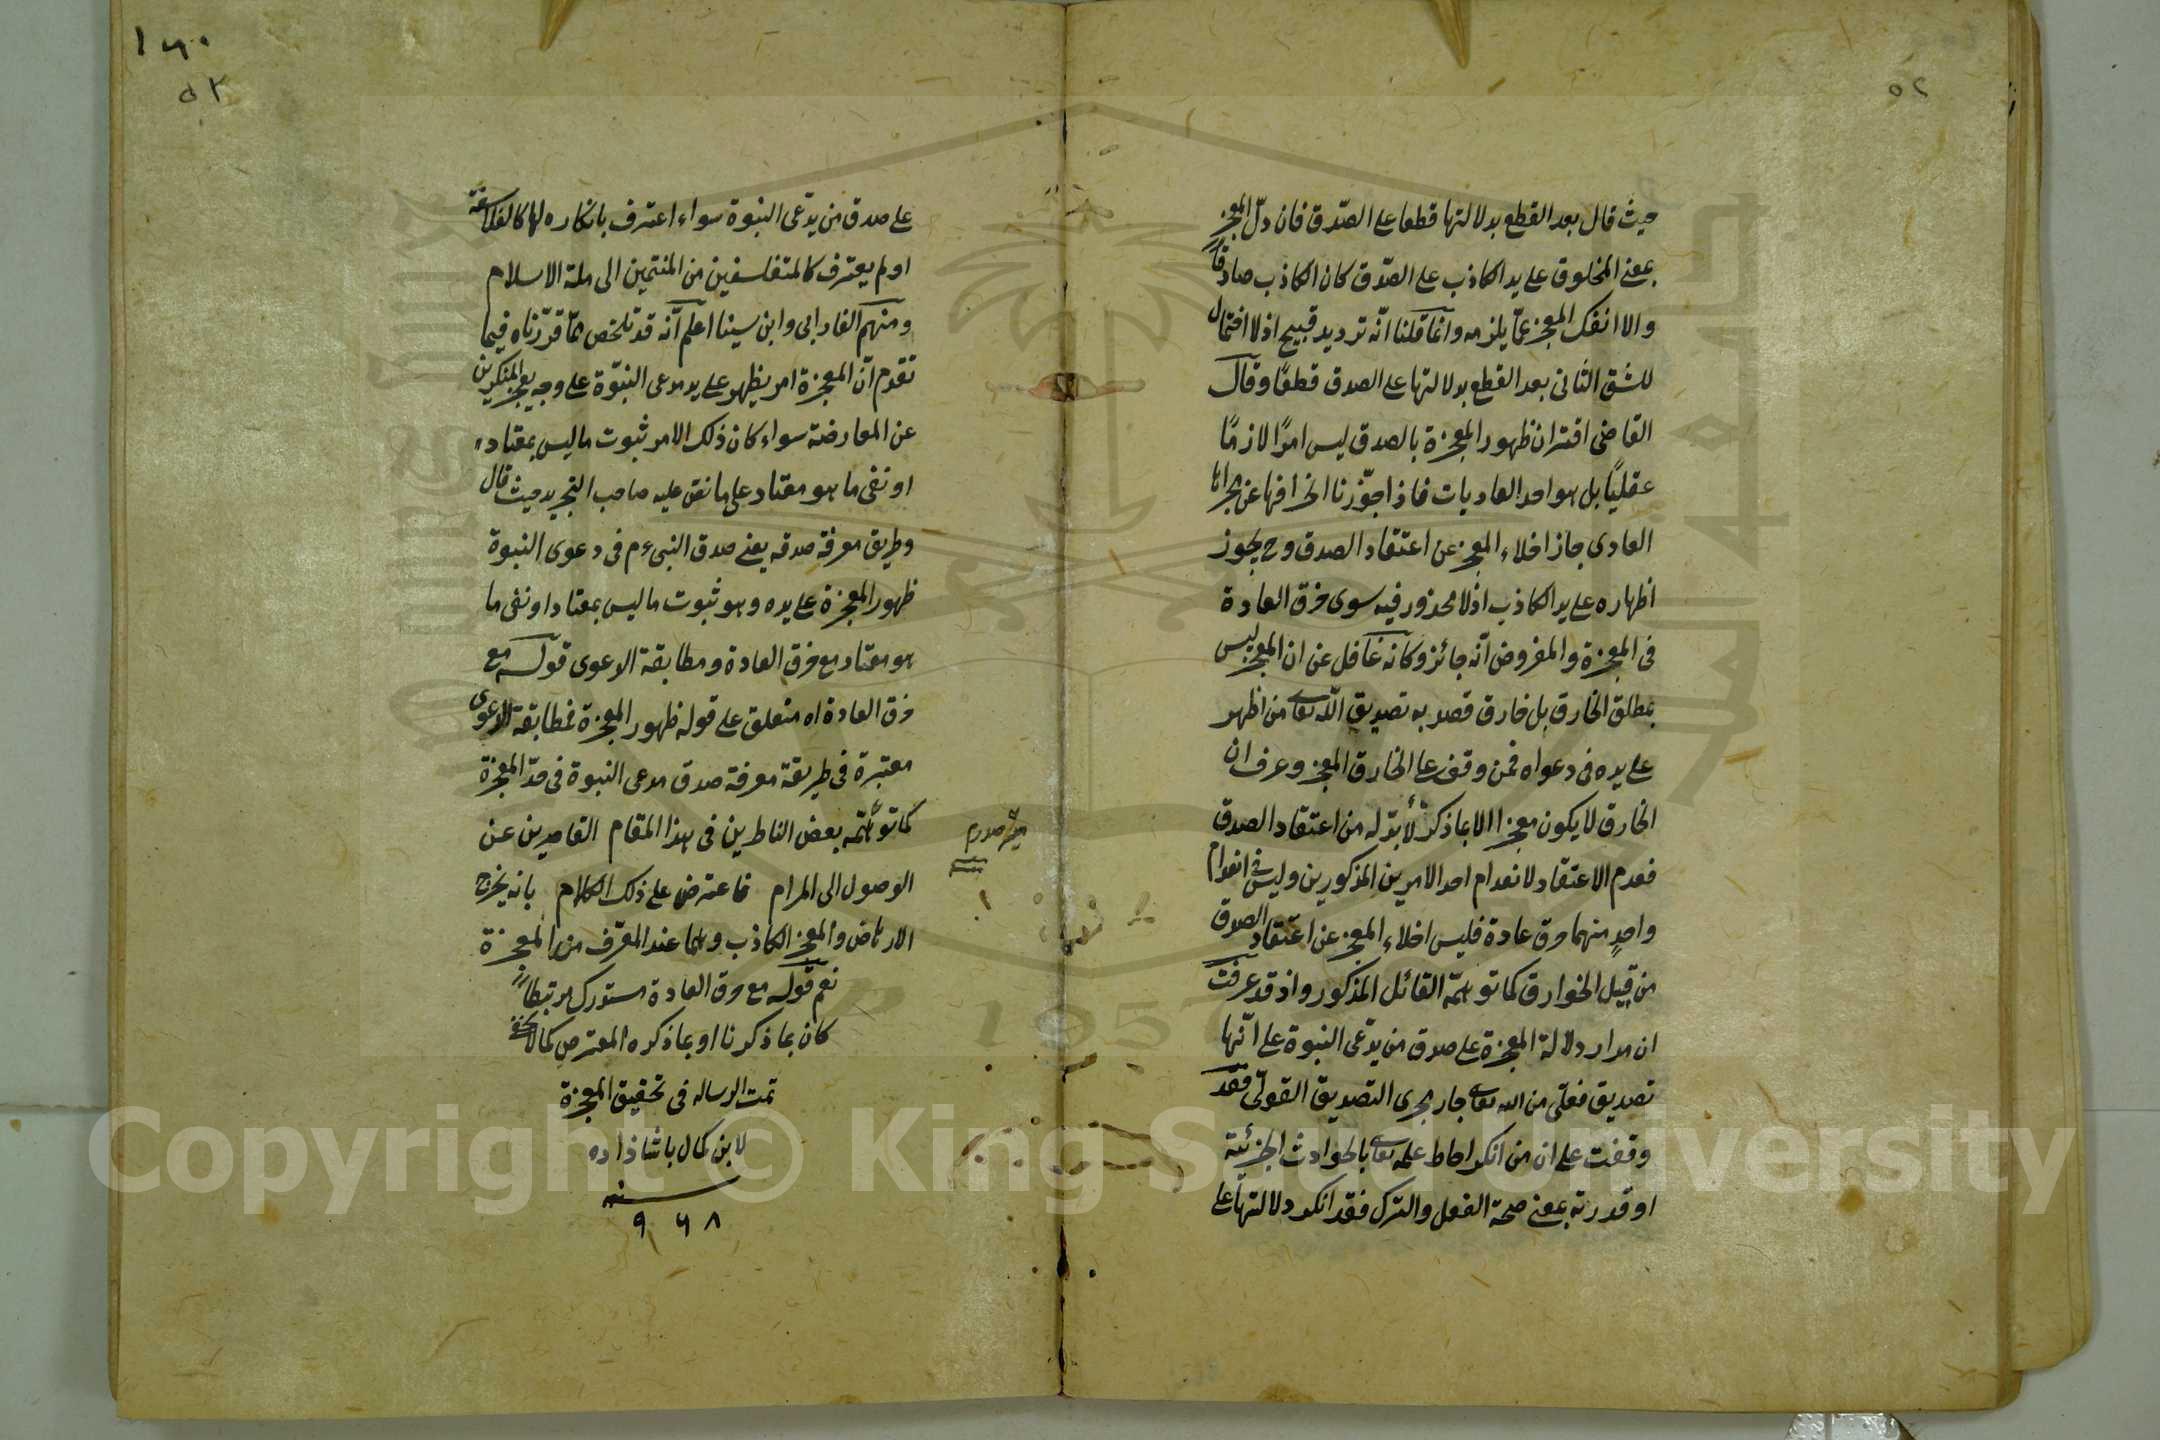 ٥٢
حيث قال بعد القطع بدلالتها قطعا على الصّدق فان دلّ المعجز
بمعنى المخلوق على يد الكاذب على الصّدق كان الكاذب صادقًا
والا انفك المعجز عمّا يلزمه وانما قلنا انّه ترديد قبيح اذ لا احتمال
للشق الثانى بعد القطع بدلالتها على الصدق قطعًا وقال
القاضى اقتران ظهور المعجزة بالصدق ليس امرًا لازمًا
عقليًا بل هو احد العاديات فاذا جوّزنا انخرافها عن مجراها
العادى جاز اخلاء المعجز عن اعتقاد الصدق وح يجوز
اظهاره على يد الكاذب اذ لا محذور فيه سوى خرق العادة
فى المعجزة والمفروض انّه جائز وكانه غافل عن ان المعجز ليس
بمطلق الخارق بل خارق قصد به تصديق اللّه تعالى من اظهر
على يده فى دعواه فمن وقف على الخارق المعجز وعرف ان
الخارق لا يكون معجزا الا بما ذكر لا بدّ له من اعتقاد الصدق
فعدم الاعتقاد لانعدام احد الامرين المذكورين وليس فى انعدام
واحدٍ منهما خرق عادة فليس اخلاء المعجز عن اعتقاد الصدق
من قبيل الخوارق كما توهمّه القائل المذكور واذ قد عرفت
ان مدار دلالة المعجزة على صدق من يدّعى النبوّة على انّها
تصديق فعلىّ من الله تعالى جار مجرى التصديق القولىّ فقد
وقفت على ان من انكر احاطة علمه تعالى بالحوادث الجزئيّة
او قدرته بمعنى صحة الفعل والترك فقد انكر دلالتها على
١٦٠
٥٢
على صدق من يدّعى النبوة سواء اعترف بانكاره لها كالفلاسفة
او لم يعترف كالمتفلسفين من المنتمين الى ملة الاسلام
ومنهم الفارابى وابن سينا اعلم انّه قد تلخص ممّا قرّرناه فيما
تقدم انّ المعجزة امر يظهر على يد مدعى النبوّة على وجه يعجز المنكرين
عن المعارضة سواء كان ذلك الامر ثبوت ما ليس بمعتاد
او نفى ما هو معتاد على ما نص عليه صاحب التجريد حيث قال
وطريق معرفة صدقه يعنى صدق النبى ءم فى دعوى النبوة
ظهور المعجزة على يده وهو ثبوت ما ليس بمعتاد او نفى ما
هو معتاد مع خرق العادة ومطابقة الدعوى قوله مع
خرق العادة اه متعلق على قوله ظهور المعجزة فمطابقة الدعوى
معتبرة فى طريقة معرفة صدق مدعى النبوة فى حدّ المعجزة
كما توهّمه بعض الناظرين فى هذا المقام القاصرين عن
الوصول الى المرام فاعترض على ذلك الكلام بانه يخرج
الارهاص والمعجز الكاذب وهما عند المعرّف من المعجزة
نعم قوله مع خرق العادة مستدرك مرتبطًا
كان بما ذكرنا او بما ذكره المعترض كما لا يخفى
تمت الرساله فى تحقيق المعجزة
لابن كمال باشا ذاده
سنه
٩٦٨
Copyright © King Saud University
1957